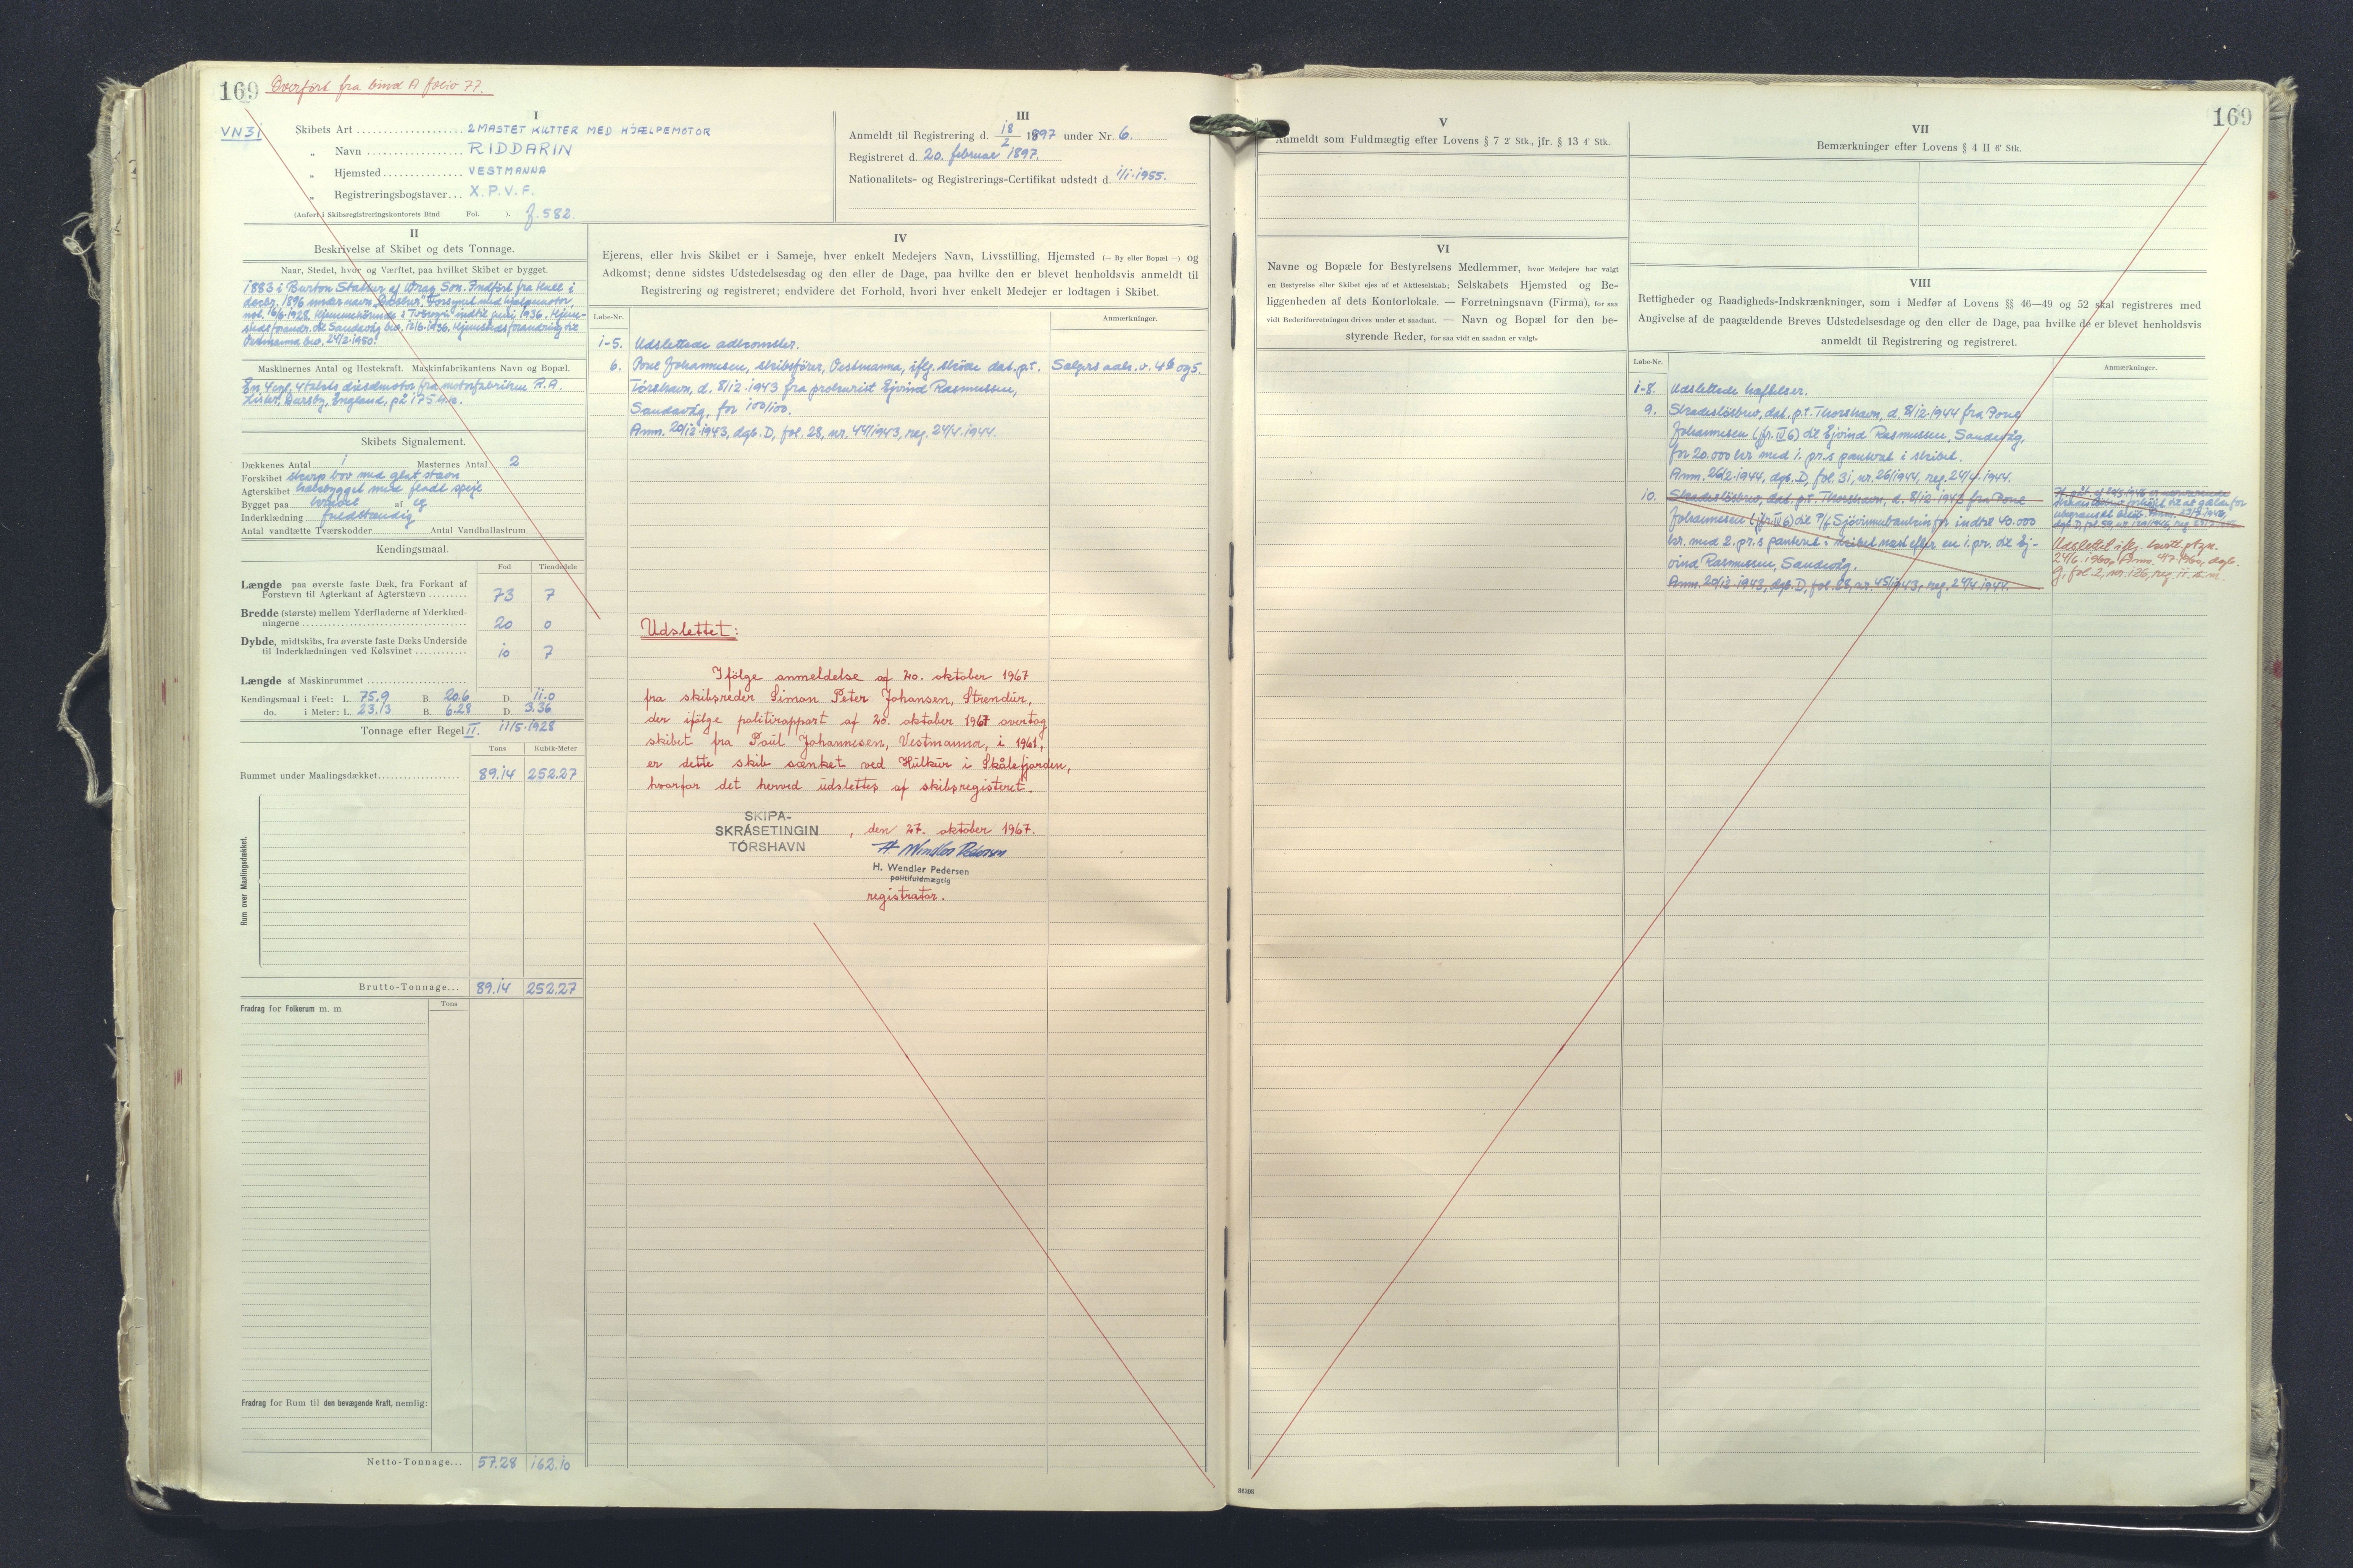 169 Overført fra bind A folio 77.
VN31
I
Skibets Art 2 MASTET KUTTER MED HJÆLPEMOTOR
„ Navn RIDDARIN
„ Hjemsted VESTMANNA
„ Registreringsbogstaver X.P.V.F.
(Anført i Skibsregistreringskontorets Bind Fol. ). f. 582.
III
Anmeldt til Registrering d. 18/2 1897 under Nr. 6.
Registreret d. 20. februar 1897.
Nationalitets- og Registrerings-Certifikat udstedt d. 1/1-1955.
II
Beskrivelse af Skibet og dets Tonnage.
Naar, Stedet, hvor og Værftet, paa hvilket Skibet er bygget.
1883 i Burton Stather af Wray Son. Indført fra Hull i
decbr. 1896 under navn Forsynet med hjælpemotor,
not. 16/6-1928. Hjemmehørende i Tverøyri indtil juni 1936. Hjem-
stedsforandr. til Sandavåg bev. 12/6-1936. Hjemstedsforandring til
Vestmanna bev. 24/2-1950.
Maskinernes Antal og Hestekraft. Maskinfabrikantens Navn og Bopæl.
En 4 cyl. 4 takts dieselmotor fra motorfabriken R.A.
Lister, Dursley, England, på 175 hk.
Skibets Signalement.
Dækkenes Antal 1 Masternes Antal 2
Forskibet skarp bov med glat stævn
Agterskibet hækbygget med fladt spejl
Bygget paa kravel af eg
Inderklædning fuldstændig
Antal vandtætte Tværskodder Antal Vandballastrum
Kendingsmaal.
Fod Tiendedele
Længde paa øverste faste Dæk, fra Forkant af
Forstævn til Agterkant af Agterstævn 73 7
Bredde (største) mellem Yderfladerne af Yderklæd-
ningerne 20 0
Dybde, midtskibs, fra øverste faste Dæks Underside
til Inderklædningen ved Kølsvinet 10 7
Længde af Maskinrummet
Kendingsmaal i Feet: L. 75.9 B. 20.6 D. 11.0
do. i Meter: L. 23.13 B. 6.28 D. 3.36
Tonnage efter Regel II. 11/5-1928
Tons Kubik-Meter
Rummet under Maalingsdækket 89.14 252.27
Rum over Maalingsdækket.
Brutto-Tonnage... 89.14 252.27
Tons
Fradrag for Folkerum m. m.
Fradrag for Rum til den bevægende Kraft, nemlig:
Netto-Tonnage... 57.28 162.10
IV
Ejerens, eller hvis Skibet er i Sameje, hver enkelt Medejers Navn, Livsstilling, Hjemsted (— By eller Bopæl —) og
Adkomst; denne sidstes Udstedelsesdag og den eller de Dage, paa hvilke den er blevet henholdsvis anmeldt til
Registrering og registreret; endvidere det Forhold, hvori hver enkelt Medejer er lodtagen i Skibet.
Løbe-Nr. Anmærkninger.
1-5. Udslettede adkomster.
6. Poul Johannesen, skibsfører, Vestmanna, iflg. skøde dat. p.t. Salgrs aals. v. 4b og 5.
Tórshavn, d. 8/12-1943 fra prokurist Ejvind Rasmussen,
Sandavåg, for 100/100.
Anm. 20/12-1943, dgb. D, fol. 28, nr. 44/1943, reg. 24/4-1944.
Udslettet:
Ifölge anmeldelse af 20. oktober 1967
fra skibsreder Simon Peter Johansen, Strendur,
der ifölge politirapport af 20. oktober 1967 overtog
skibet fra Poul Johannesen, Vestmanna, i 1961,
er dette skib sænket ved Hulkur i Skålefjorden,
hvorfor det herved udslettes af skibsregisteret.
SKIPA-
SKRÁSETINGIN
TÓRSHAVN
, den 27. oktober 1967.
H Wendler Pedersen
H. Wendler Pedersen
politifuldmægtig
registrator.
169
V
Anmeldt som Fuldmægtig efter Lovens § 7 2' Stk., jfr. § 13 4' Stk.
VI
Navne og Bopæle for Bestyrelsens Medlemmer, hvor Medejere har valgt
en Bestyrelse eller Skibet ejes af et Aktieselskab; Selskabets Hjemsted og Be-
liggenheden af dets Kontorlokale. — Forretningsnavn (Firma), for saa
vidt Rederiforretningen drives under et saadant. — Navn og Bopæl for den be-
styrende Reder, for saa vidt en saadan er valgt.
VII
Bemærkninger efter Lovens § 4 II 6' Stk.
VIII
Rettigheder og Raadigheds-Indskrænkninger, som i Medfør af Lovens §§ 46—49 og 52 skal registreres med
Angivelse af de paagældende Breves Udstedelsesdage og den eller de Dage, paa hvilke de er blevet henholdsvis
anmeldt til Registrering og registreret.
Løbe-Nr. Anmærkninger.
1-8. Udslettede hæftelser.
9. Skadesløsbrev, dat. p.t. Thorshavn, d. 8/12-1944 fra Poul
Johannesen (jfr. IV 6) til Ejvind Rasmussen, Sandavåg,
for 20.000 kr med 1. pr.s panteret i skibet.
Anm. 26/2-1944, dgb. D, fol. 31, nr. 26/1944, reg. 24/4-1944.
10. Skadesløsbrev, dat. p.t. Thorshavn, d. 8/12-1943 fra Poul
Johannesen (jfr. IV 6) til P/f Sjóvinnubankin for indtil 40.000
kr. med 2. pr.s panteret i skibet næst efter en 1. pr. til Ej-
vind Rasmussen, Sandavåg.
Anm. 20/12-1943, dgb. D, fol. 28, nr. 45/1943, reg. 24/4-1944.
Udslettet iflg. kvitt. p.t.
24/6-1960, Anm. 4/7-1960, dgb.
G, fol. 2, nr. 126, reg. 11. s.m.
56298